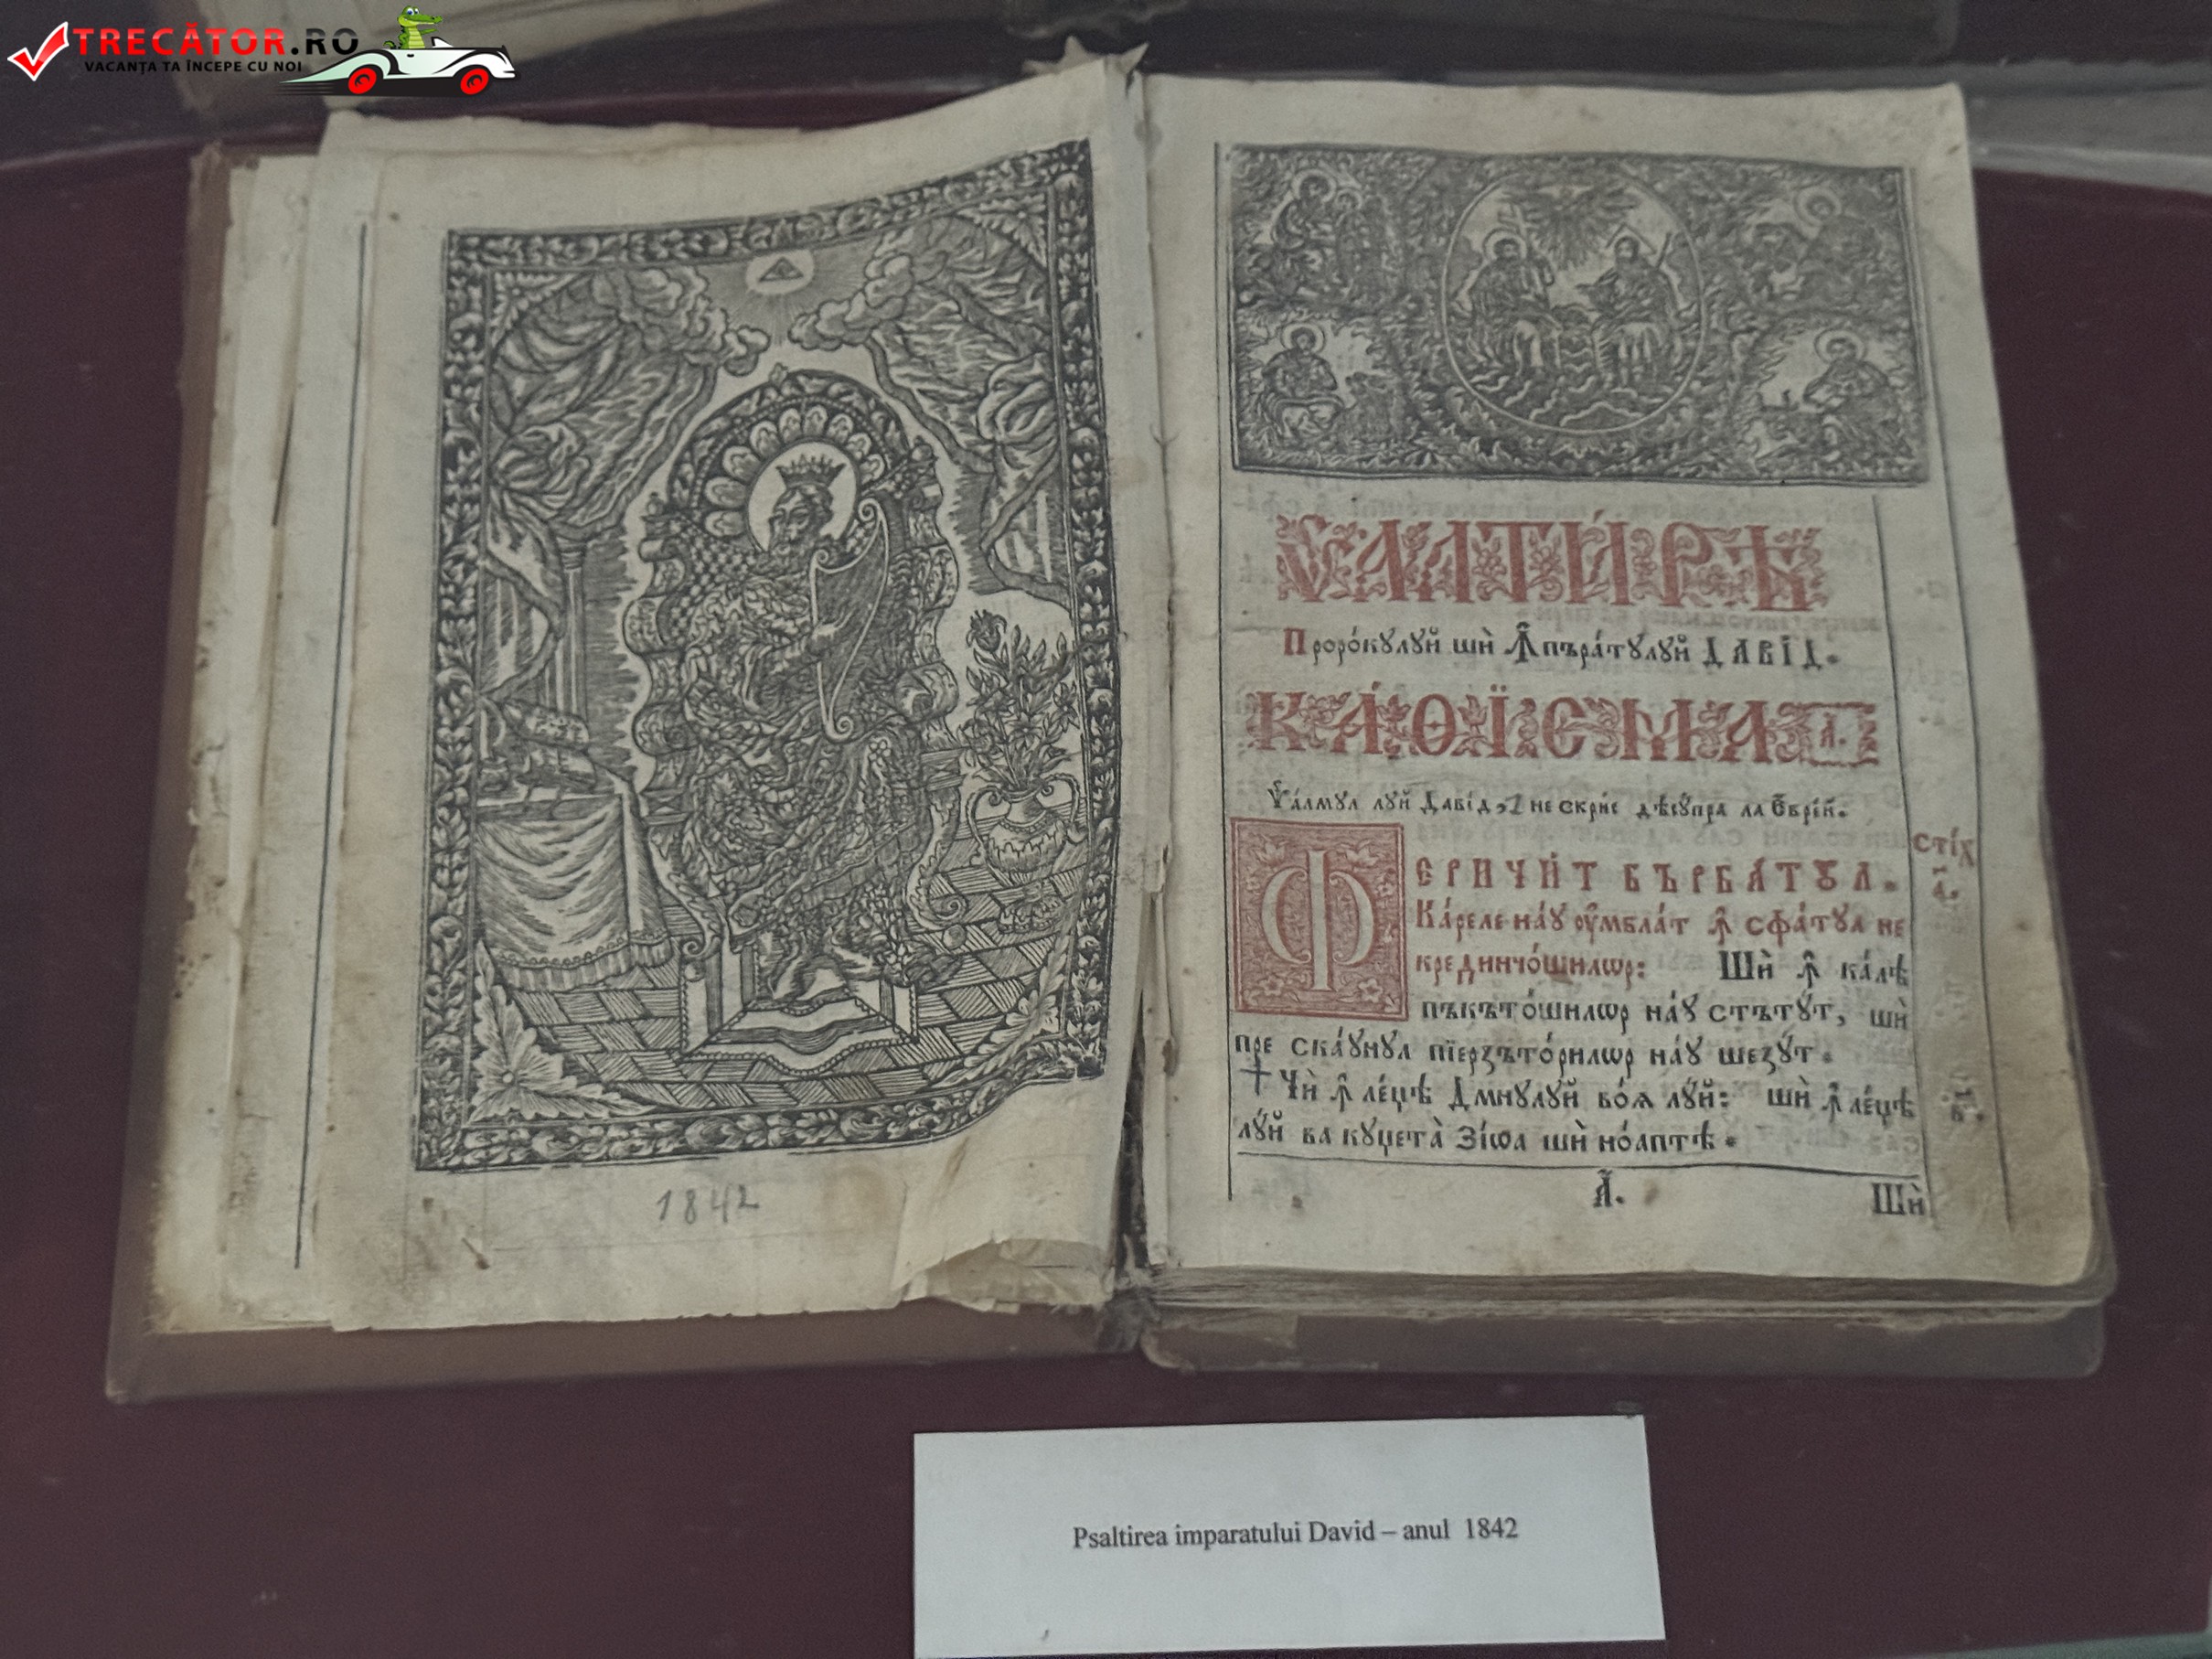 TRECĂTOR.RO
VACANȚA TA ÎNCEPE CU NOI
1842
ѰАЛТИ́РѢ
Проро́кꙋлꙋй шѝ Ꙟпъра́тꙋлꙋй ДАВІ́Д.
КА́ѲЇСМА А҃.
Ѱа́лмꙋл лꙋй Даві́д, не скри́е дѣсꙋ́пра ла Є҆вре́й.
ФЕРИЧИ́Т БЪРБА́ТꙊЛ.
Ка́реле на́ꙋ оу҆мбла́т ꙟ҆ сфа́тꙋл не
крединчо́шилѡр: Шѝ ꙟ҆ ка́лѣ
пъкъто́шилѡр на́ꙋ стътꙋ́т, шѝ
пре ска́ꙋнꙋл пїерзъто́рилѡр на́ꙋ шезꙋ́т.
Чѝ ꙟ҆ ле́џѣ Дмнꙋлꙋй во́ѧ лꙋ́й: шѝ ꙟ҆ ле́џѣ
лꙋ́й ва кꙋџета̀ Зі́ѡа шѝ но́аптѣ.
СТІ́Х
а҃.
в҃.
А҃.
Шѝ
Psaltirea imparatului David – anul 1842